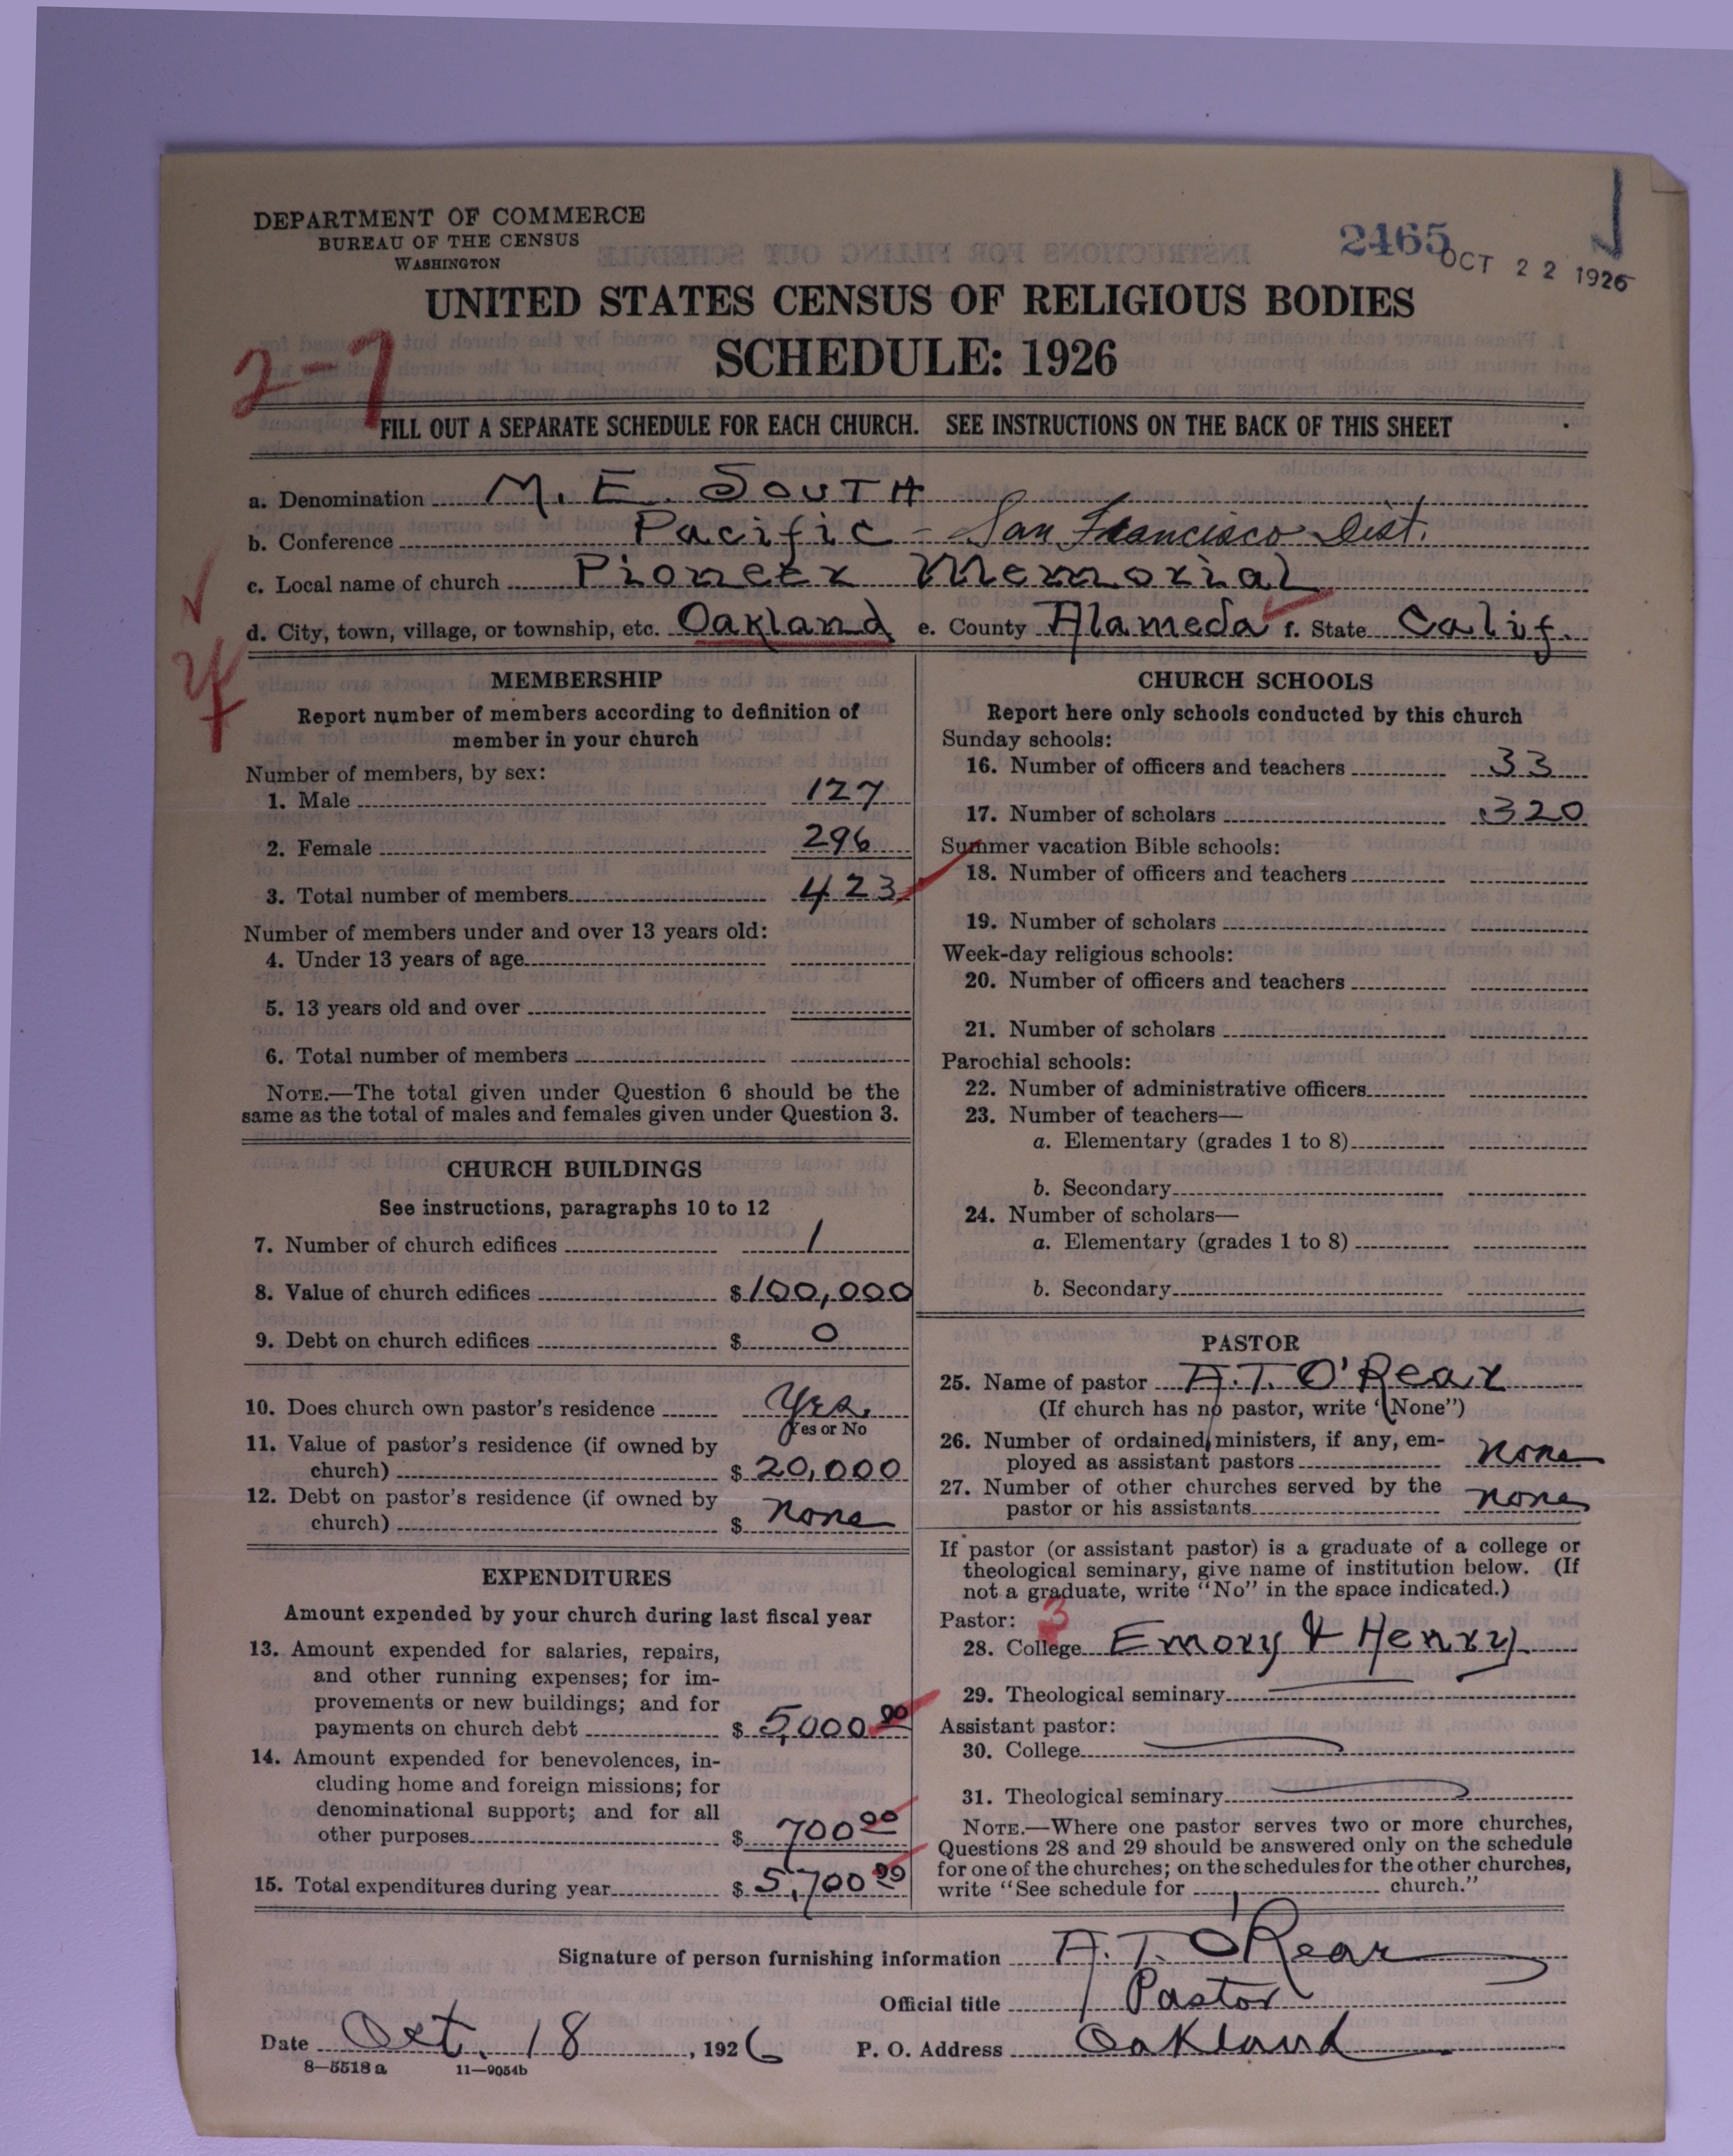 DEPARTMENT OF COMMERCE
BUREAU OF THE CENSUS
WASHINGTON
2465
OCT 22 1926
UNITED STATES CENSUS OF RELIGIOUS BODIES
SCHEDULE: 1926
2-7
FILL OUT A SEPARATE SCHEDULE FOR EACH CHURCH. SEE INSTRUCTIONS ON THE BACK OF THIS SHEET
a. Denomination M. E. SOUTH
b. Conference Pacific - San Francisco Dist.
c. Local name of church Pioneer Memorial
d. City, town, village, or township, etc. Oakland e. County Alameda f. State Calif.
MEMBERSHIP
Report number of members according to definition of
member in your church
Number of members, by sex:
1. Male 127
2. Female 296
3. Total number of members 423
Number of members under and over 13 years old:
4. Under 13 years of age
5. 13 years old and over
6. Total number of members
NOTE.—The total given under Question 6 should be the
same as the total of males and females given under Question 3.
CHURCH BUILDINGS
See instructions, paragraphs 10 to 12
7. Number of church edifices 1
8. Value of church edifices $100,000
9. Debt on church edifices $ 0
10. Does church own pastor's residence Yes.
Yes or No
11. Value of pastor's residence (if owned by
church) $ 20,000
12. Debt on pastor's residence (if owned by
church) $ None
EXPENDITURES
Amount expended by your church during last fiscal year
13. Amount expended for salaries, repairs,
and other running expenses; for im-
provements or new buildings; and for
payments on church debt $ 5,000.00
14. Amount expended for benevolences, in-
cluding home and foreign missions; for
denominational support; and for all
other purposes $ 700 00
15. Total expenditures during year $ 5,700 00
CHURCH SCHOOLS
Report here only schools conducted by this church
Sunday schools:
16. Number of officers and teachers 33
17. Number of scholars 320
Summer vacation Bible schools:
18. Number of officers and teachers
19. Number of scholars
Week-day religious schools:
20. Number of officers and teachers
21. Number of scholars
Parochial schools:
22. Number of administrative officers
23. Number of teachers—
a. Elementary (grades 1 to 8)
b. Secondary
24. Number of scholars—
a. Elementary (grades 1 to 8)
b. Secondary
PASTOR
25. Name of pastor A. T. O'Rear
(If church has no pastor, write "None")
26. Number of ordained ministers, if any, em-
ployed as assistant pastors None
27. Number of other churches served by the
pastor or his assistants None
If pastor (or assistant pastor) is a graduate of a college or
theological seminary, give name of institution below. (If
not a graduate, write "No" in the space indicated.)
Pastor: 3
28. College Emory & Henry
29. Theological seminary
Assistant pastor:
30. College
31. Theological seminary
NOTE.—Where one pastor serves two or more churches,
Questions 28 and 29 should be answered only on the schedule
for one of the churches; on the schedules for the other churches,
write "See schedule for church."
Signature of person furnishing information A. T. O'Rear
Official title Pastor
Date Oct. 18, 1926 P. O. Address Oakland
8—5518a 11—9054b